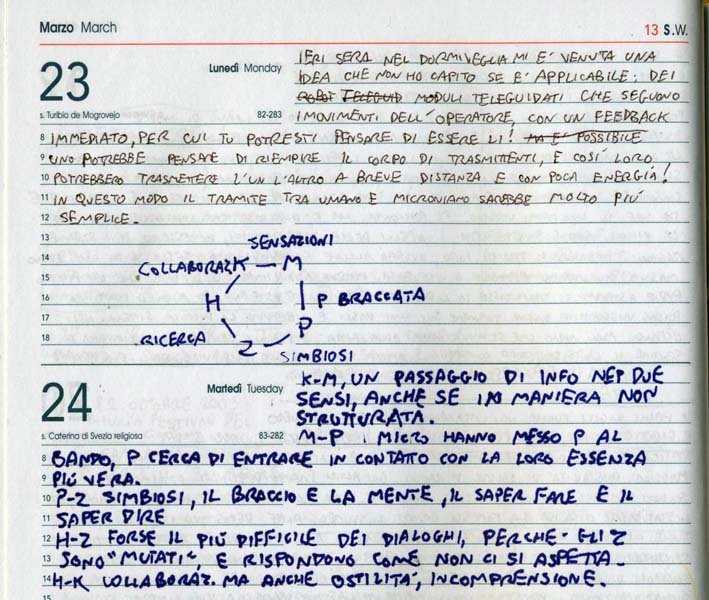 Marzo March
13 S.W.
23
Lunedì Monday
s. Turibio de Mogrovejo
82-283
IERI SERA NEL DORMIVEGLIA MI E' VENUTA UNA
IDEA CHE NON HO CAPITO SE E' APPLICABILE: DEI
ROBOT TELEGUID MODULI TELEGUIDATI CHE SEGUONO
I MOVIMENTI DELL'OPERATORE, CON UN FEEDBACK
8 IMMEDIATO, PER CUI TU POTRESTI PENSARE DI ESSERE LI! MA E' POSSIBILE
9 UNO POTREBBE PENSARE DI RIEMPIRE IL CORPO DI TRASMITTENTI, E COSI' LORO
10 POTREBBERO TRASMETTERE L'UN L'ALTRO A BREVE DISTANZA E CON POCA ENERGIA!
11 IN QUESTO MODO IL TRAMITE TRA UMANO E MICRONIANO SAREBBE MOLTO PIÙ
12 SEMPLICE.
13
SENSAZIONI
14
COLLABORAZ K — M
15
16
H P BRACCATA
17
P
18
RICERCA Z
SIMBIOSI
24
Martedì Tuesday
s. Caterina di Svezia religiosa
83-282
K-M, UN PASSAGGIO DI INFO NEI DUE
SENSI, ANCHE SE IN MANIERA NON
STRUTTURATA.
M-P I MICRO HANNO MESSO P AL
8 BANDO, P CERCA DI ENTRARE IN CONTATTO CON LA LORO ESSENZA
9 PIÙ VERA.
10 P-Z SIMBIOSI, IL BRACCIO E LA MENTE, IL SAPER FARE E IL
11 SAPER DIRE
12 H-Z FORSE IL PIÙ DIFFICILE DEI DIALOGHI, PERCHE' GLI Z
13 SONO "MUTATI", E RISPONDONO COME NON CI SI ASPETTA.
14 H-K COLLABORAZ. MA ANCHE OSTILITA', INCOMPRENSIONE.
15